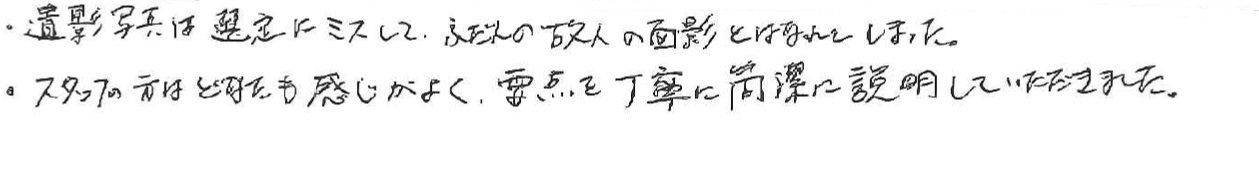 ・遺影写真は選定にミスして、ふだんの故人の面影とはなれてしまった。
・スタッフの方はどなたも感じがよく、要点を丁寧に簡潔に説明していただきました。